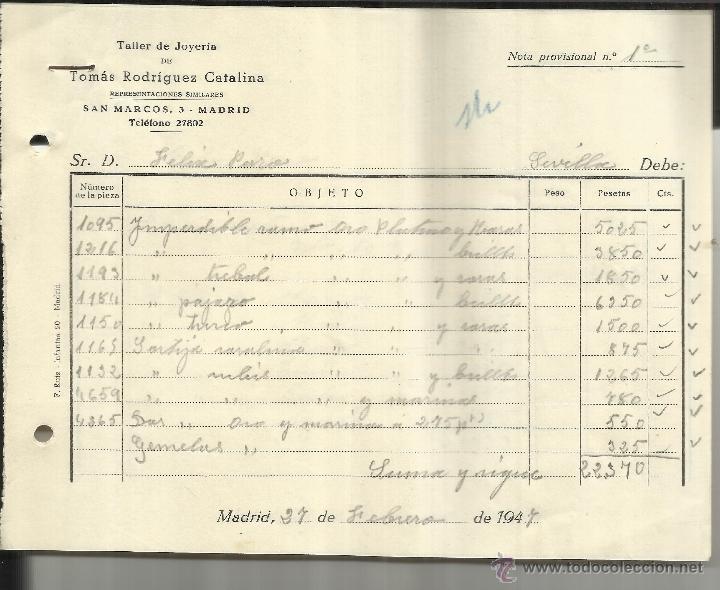 Taller de Joyería
DE
Tomás Rodríguez Catalina
REPRESENTACIONES SIMILARES
SAN MARCOS, 3 - MADRID
Teléfono 27802
Nota provisional n.º 1ª
Sr. D. Felix Sevilla Debe:
Número de la pieza OBJETO Peso Pesetas Cts.
1095 Imperdible ramo oro platino y rosas 5025
1216 " " " " brillts 3850
1193 " trebol " " y rosas 1850
1184 " pajaro " " brillts 6350
1150 " " " y rosas 1500
1165 Sortija " " " 875
1132 " " " y brillts 1265
4659 " " " y marinas 780
4365 oro y marina a 275 pts 550
Gemelos " 325
Suma y sigue 22370
Madrid, 27 de Febrero de 1947
F. Ruiz - Infantas 20 - Madrid.
todocoleccion.net